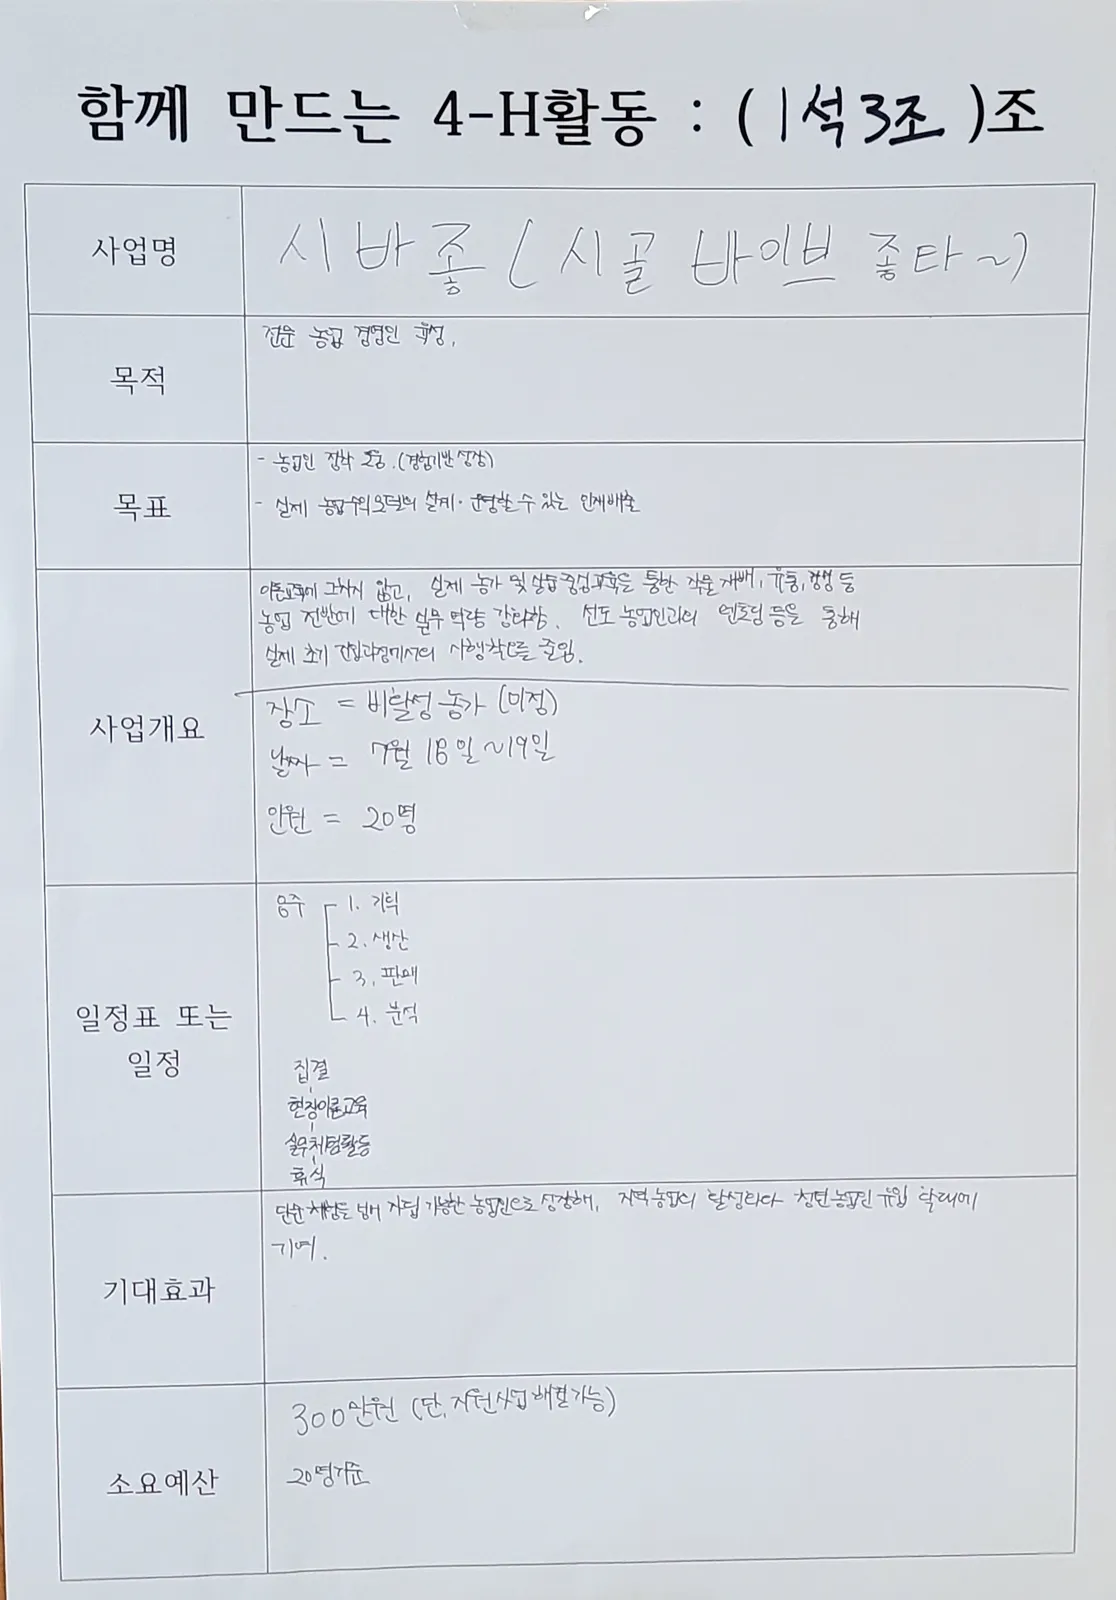 함께 만드는 4-H활동 : (1석3조)조
사업명
시바좋 (시골 바이브 좋타~)
목적
전문 농업 경영인 육성.
목표
- 농업인 정착 도움.(경험기반 성장)
- 실제 농업수익모델의 설계·운영할 수 있는 인재배출
사업개요
이론교육에 그치지 않고, 실제 농가 및 실습중심교육을 통한 작물 재배, 유통, 경영 등
농업 전반에 대한 실무 역량 강화함. 선도 농업인과의 멘토링 등을 통해
실제 초기 진입과정에서의 시행착오를 줄임.
장소 = 비활성 농가 (미정)
날짜 = 7월 18일~19일
인원 = 20명
일정표 또는
일정
1. 기획
2. 생산
3. 판매
4. 분석
집결
현장이론교육
실무체험활동
휴식
기대효과
단순체험을 넘어 자립 가능한 농업인으로 성장해, 지역농업의 활성화다 청년농업인 유입 확대에
기여.
소요예산
300만원 (단, 지원사업 해결가능)
20명기준